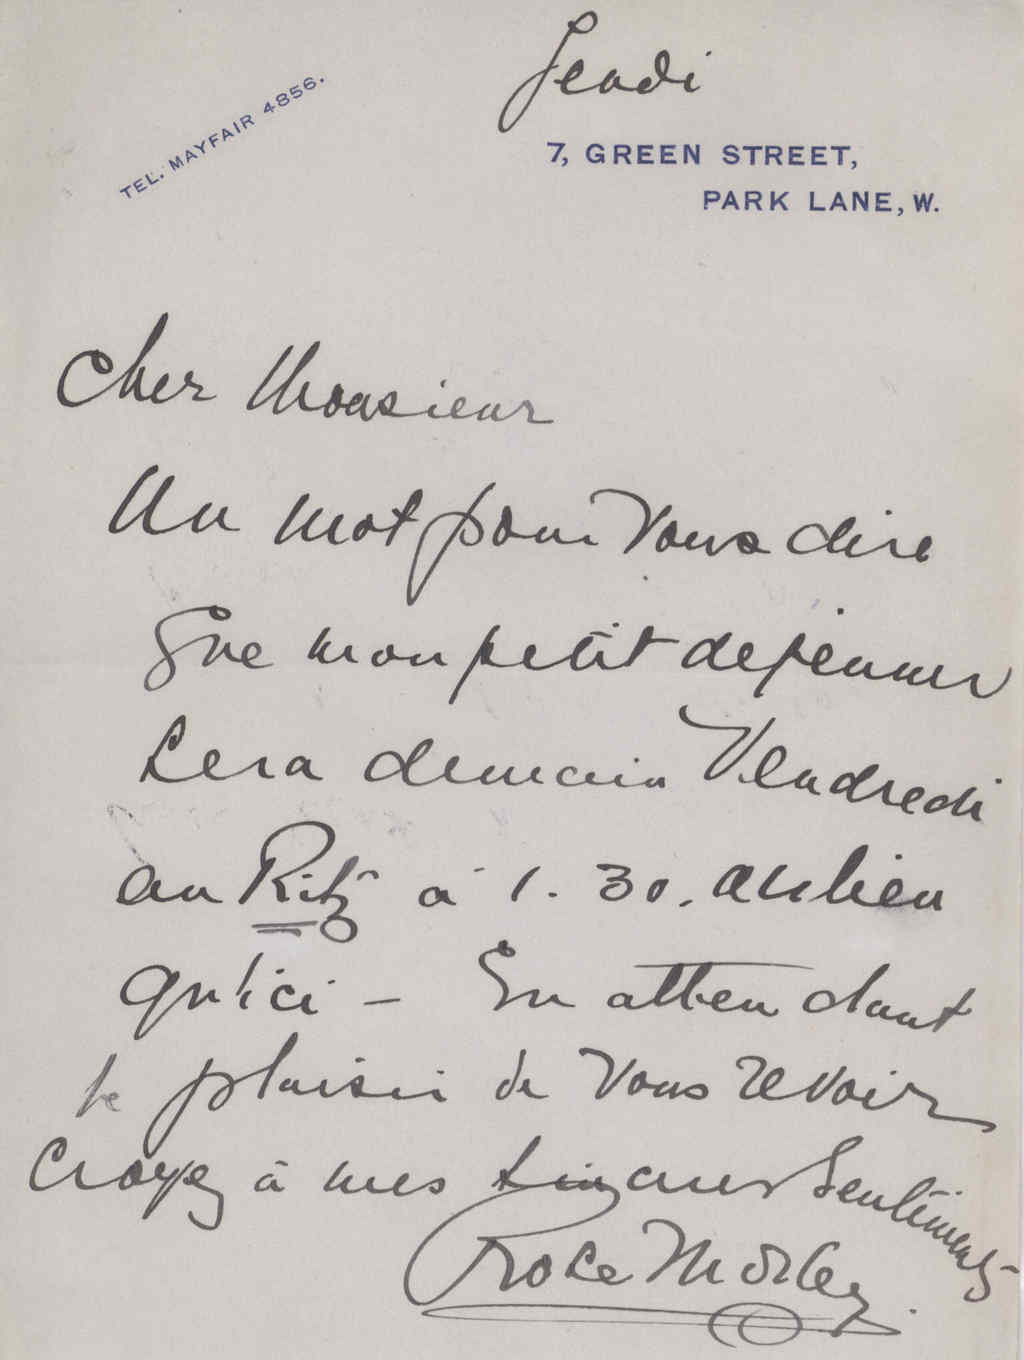 Jeudi
TEL. MAYFAIR 4856.
7, GREEN STREET,
PARK LANE, W.
Cher Monsieur
Un mot pour Vous dire
Que mon petit dejeuner
Sera demain Vendredi
au Ritz à 1.30. au lieu
qu'ici - En attendant
le plaisir de Vous revoir
Croyez à mes sinceres Sentiments
Rose Morley